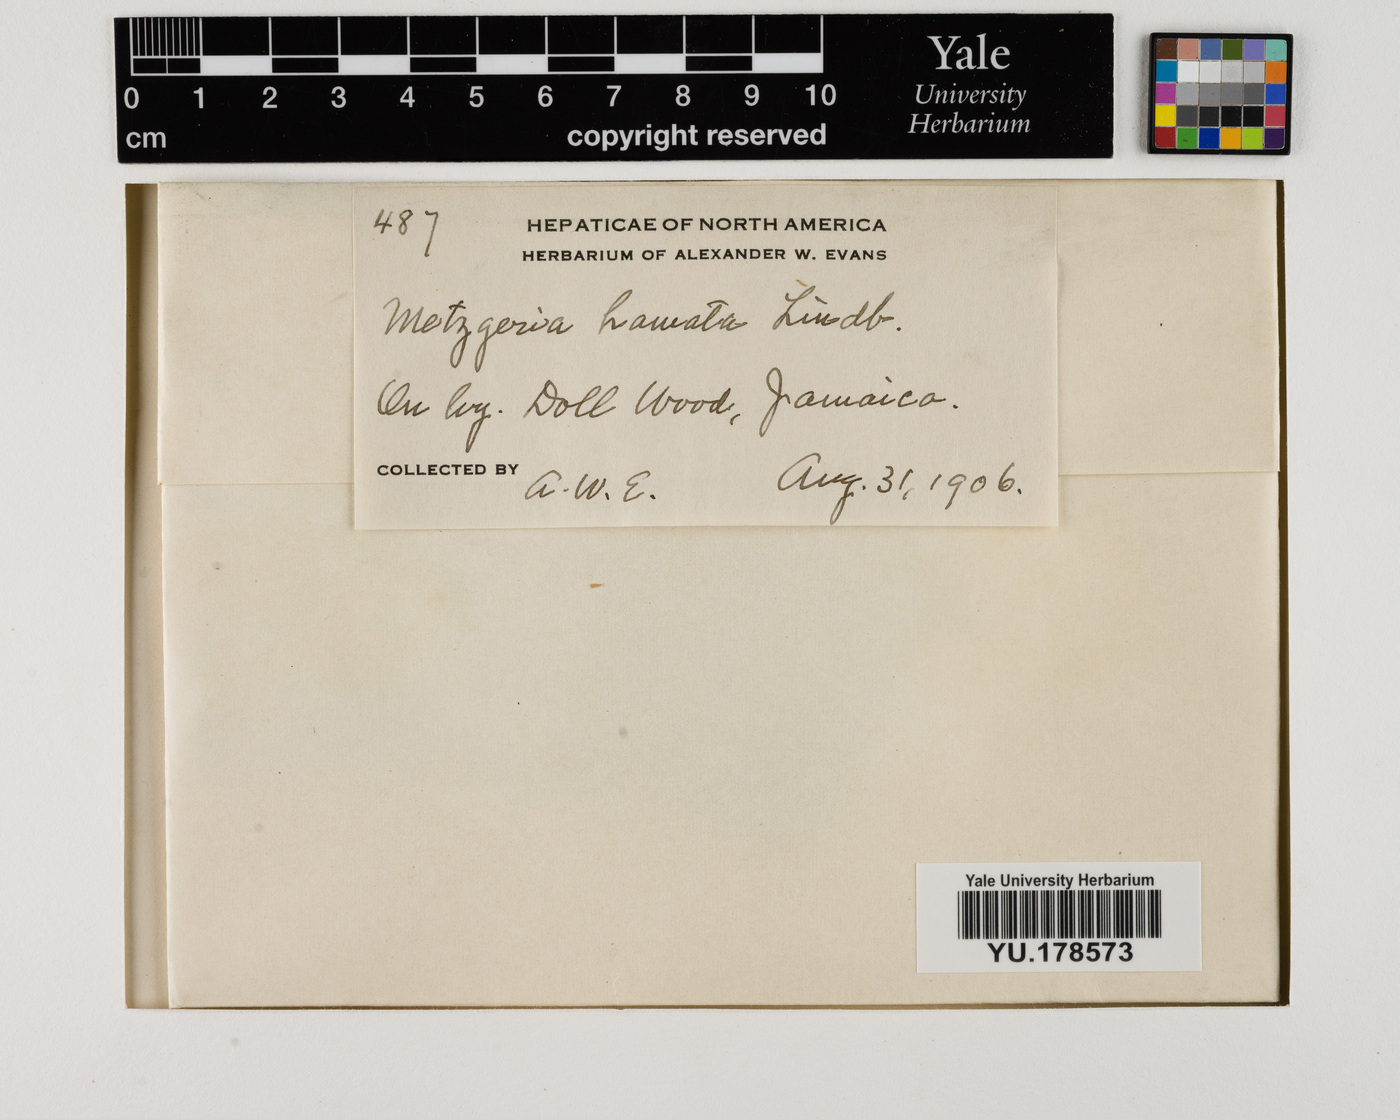 0 1 2 3 4 5 6 7 8 9 10
cm
copyright reserved
Yale
University
Herbarium
487
HEPATICAE OF NORTH AMERICA
HERBARIUM OF ALEXANDER W. EVANS
Metzgeria hamata Lindb.
On log. Doll Wood, Jamaica.
COLLECTED BY A. W. E. Aug. 31, 1906.
Yale University Herbarium
YU.178573